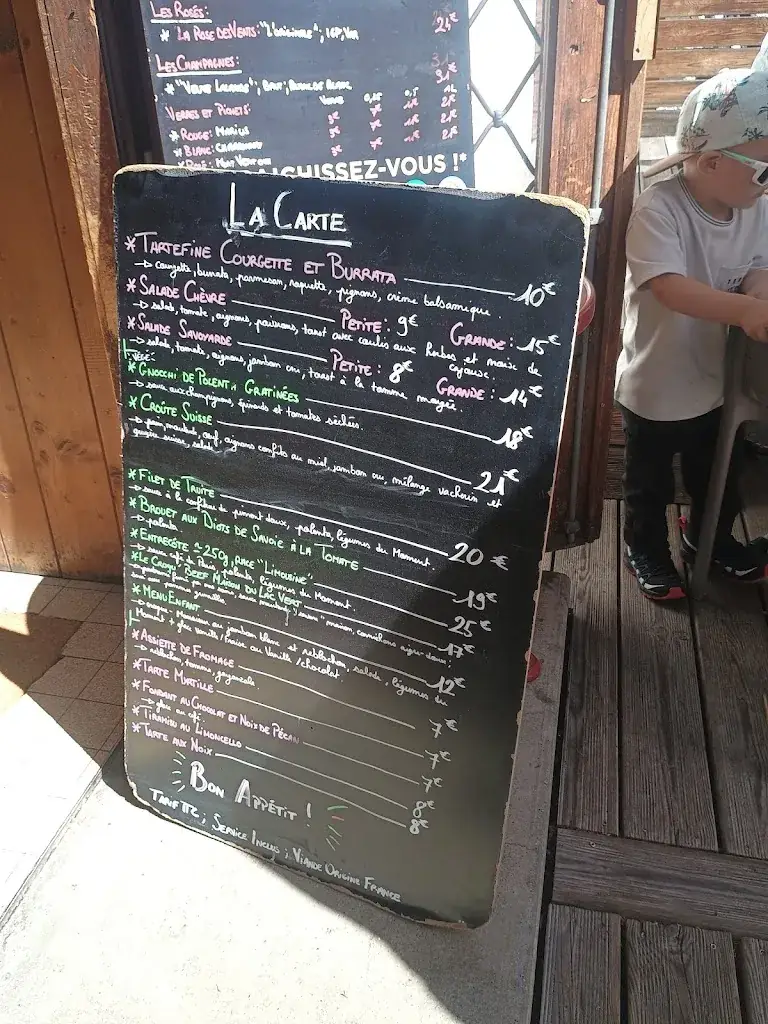 Les Rosés:
* La Rose des Vents: "L'originale"; IGP, Var 24€
Les Champagnes:
Brut, Blanc de Blanc
Verres et Pichets:
* Rouge: Marius
* Blanc: Chardonnay
* Rosé: Mont Ventoux
RAÎCHISSEZ-VOUS !*
La Carte
* Tartefine Courgette et Burrata 10€
→ courgette, burrata, parmesan, roquette, pignons, crème balsamique.
* Salade Chèvre Petite: 9€ Grande: 15€
→ salade, tomate, oignons, poivrons, toast avec coulis aux herbes et noix de cajoux.
* Salade Savoyarde Petite: 8€ Grande: 14€
→ salade, tomates, oignons, jambon cru, toast à la tomme
végé:
* Gnocchi de Polenta Gratinées 18€
→ sauce aux champignons, épinards et tomates séchées.
* Croûte Suisse 21€
→ pain, moutarde, oeuf, oignons confits au miel, jambon cru, mélange vacherin et
gruyère suisse, salade
* Filet de Truite 20€
→ sauce à la confiture de piment doux, polenta, légumes du Moment.
* Brouet aux Diots de Savoie à la Tomate 19€
→ polenta
* Entrecôte ≈ 250g, race "Limousine" 25€
→ sauce café de Paris, polenta, légumes du Moment.
* Le Croqu' Beef Maison du Lac Vert 17€
* Menu Enfant 12€
→ croque Monsieur au jambon blanc et reblochon, salade, légumes du
Moment + glace Vanille/fraise ou Vanille/chocolat
* Assiette de Fromage 7€
→ reblochon, tomme, gorgonzola.
* Tarte Myrtille 7€
* Fondant au Chocolat et Noix de Pécan 7€
→ glace au café.
* Tiramisu au Limoncello 8€
* Tarte aux Noix 8€
Bon Appétit !
Tarif TTC; Service Inclus; Viande Origine France